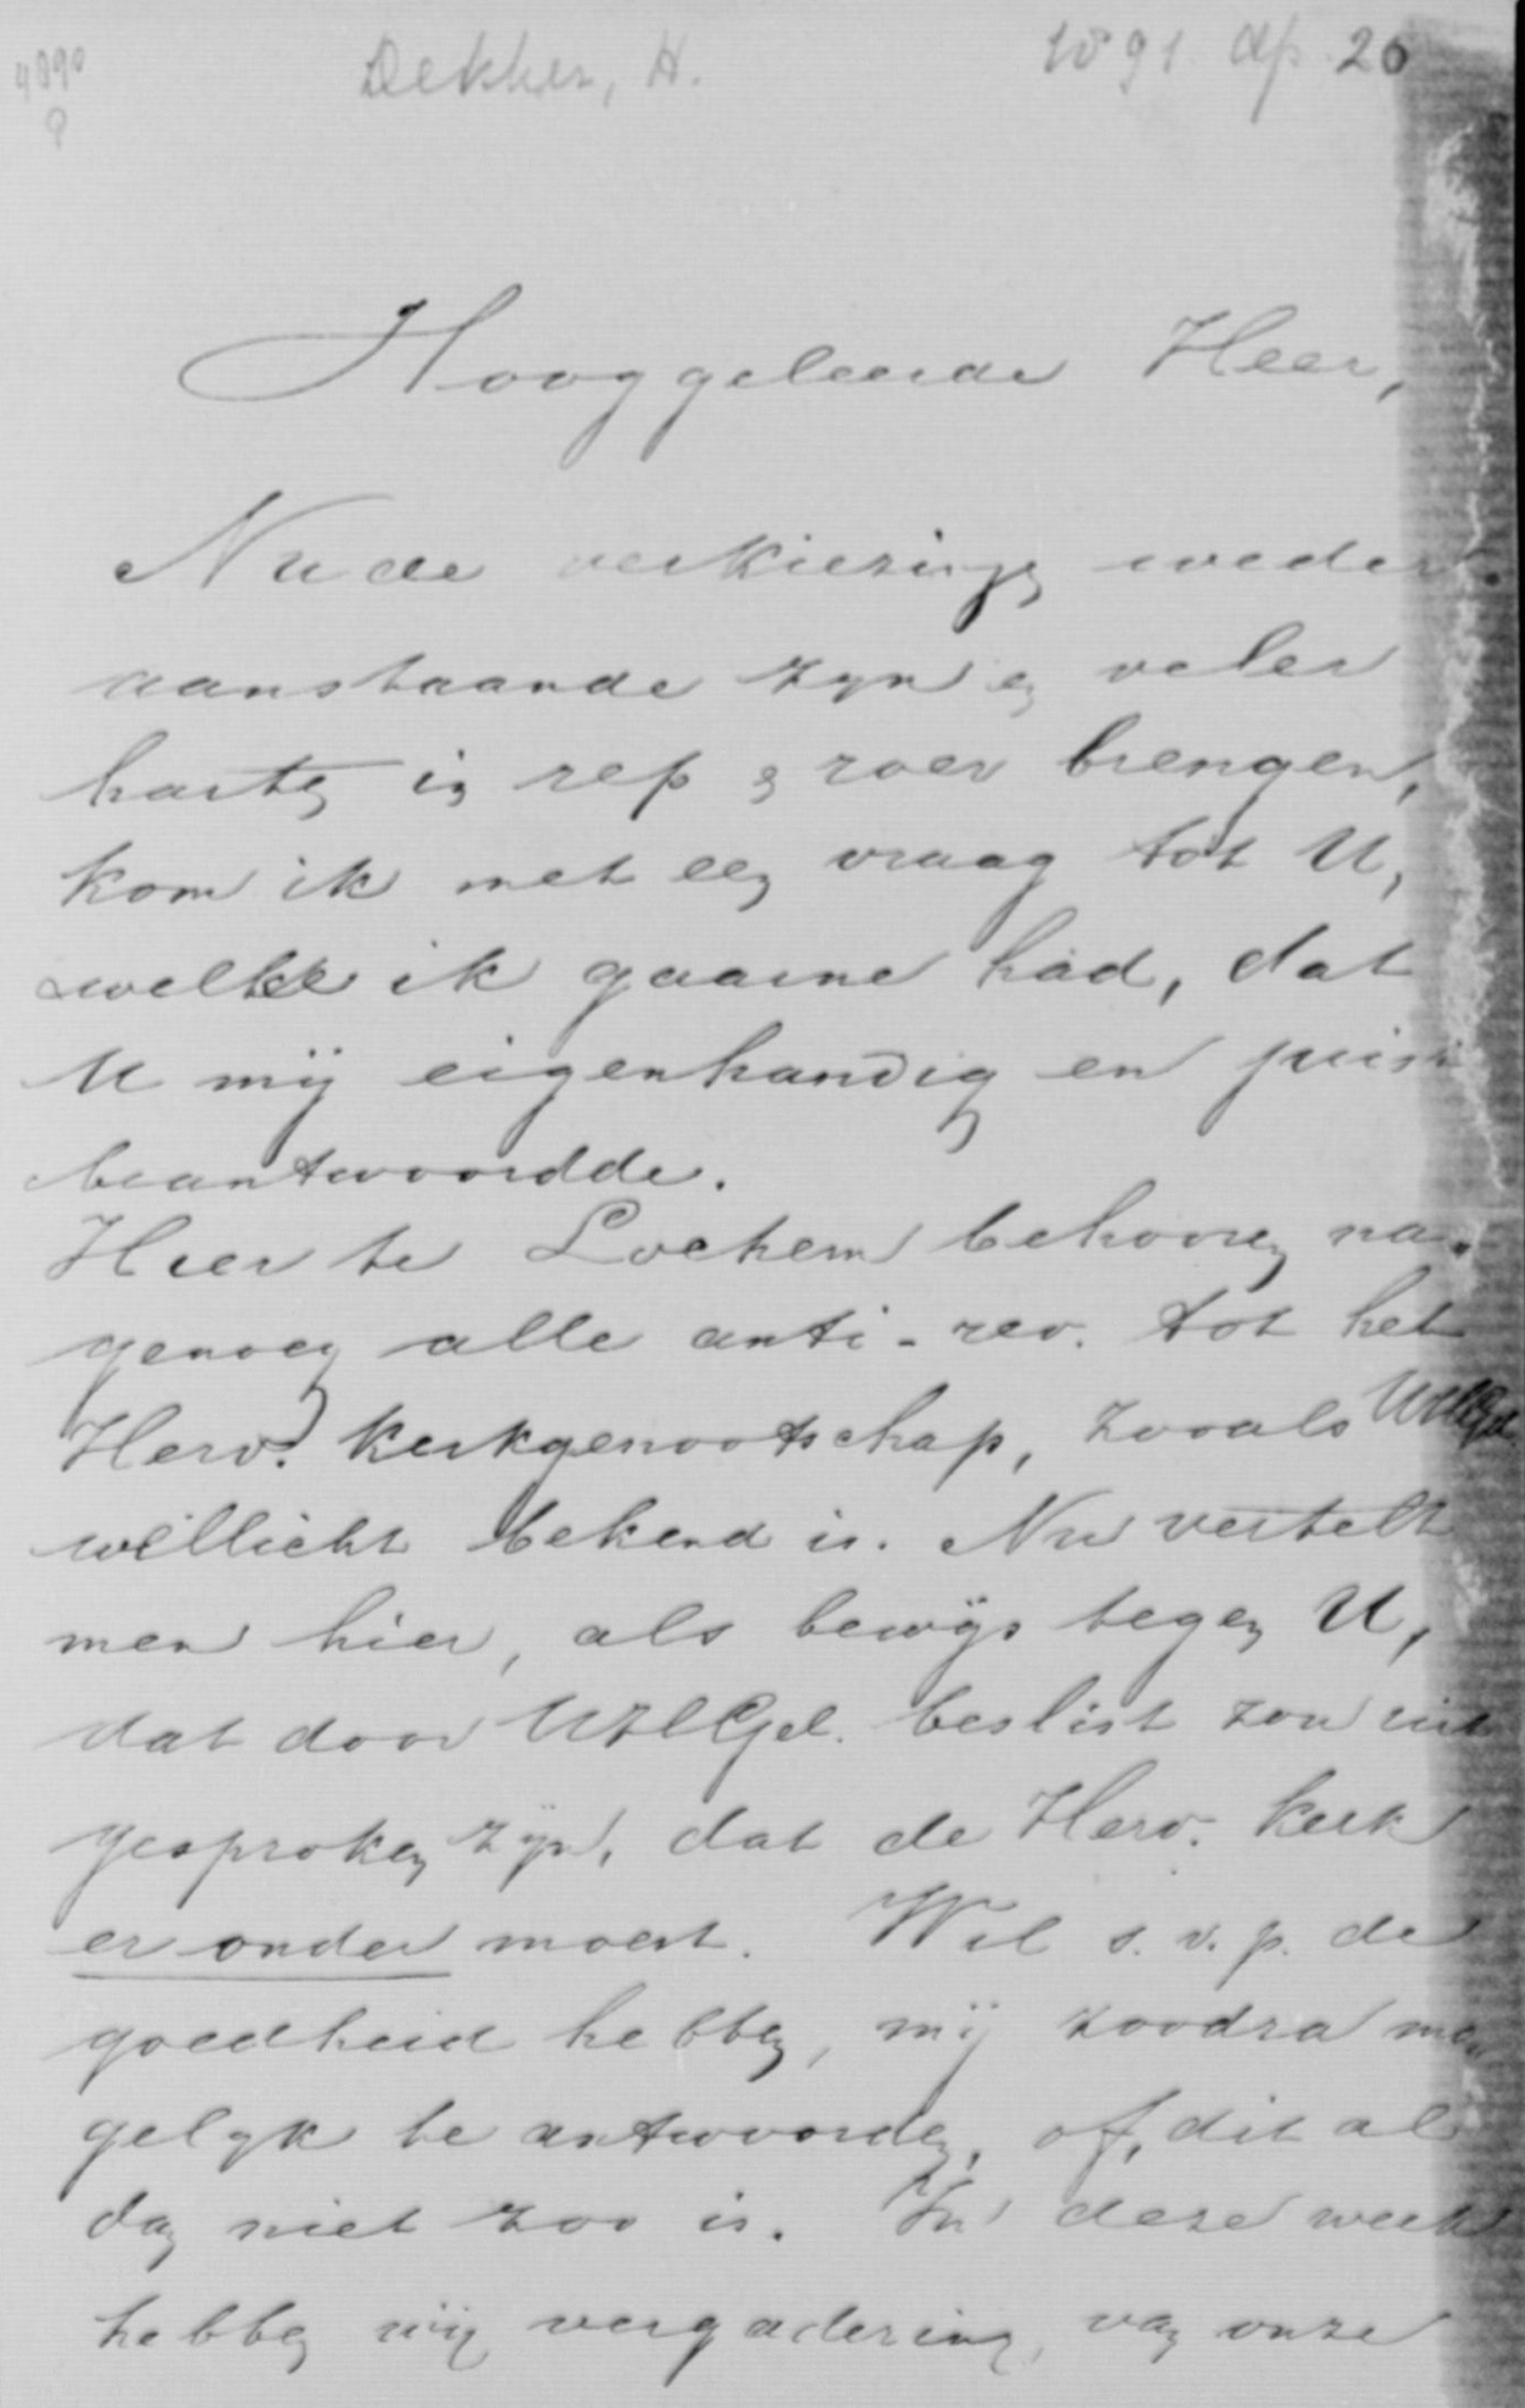 4890
8
Dekker, H.
1891 Ap. 20
Hooggeleerde Heer,
Nu de verkiezingen weder
aanstaande zijn en veler
harten in rep & roer brengen,
kom ik met een vraag tot U,
welke ik gaarne had, dat
U mij eigenhandig en juist
beantwoordde.
Hier te Lochem behooren na-
genoeg alle anti-rev. tot het
Herv. kerkgenootschap, zooals UHGel.
wellicht bekend is. Nu vertelt
men hier, als bewijs tegen U,
dat door UHGel. beslist zou uit
gesproken zijn, dat de Herv. kerk
er onder moest. Wil s.v.p. de
goedheid hebben, mij zoodra mo-
gelijk te antwoorden, of dit al
dan niet zoo is. In deze week
hebben wij vergadering van onze